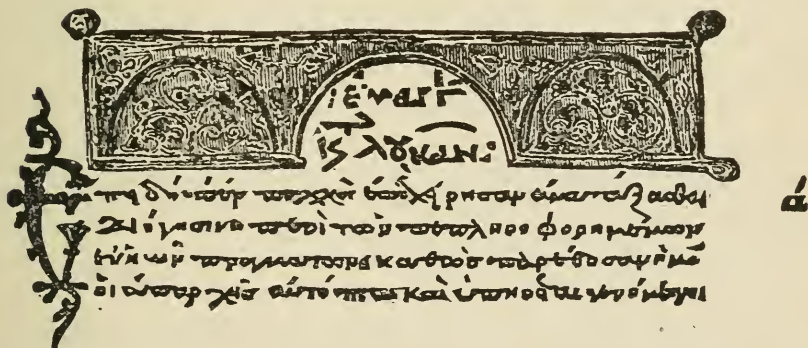 εὐαγγ
λουκαν:
ἐπειδήπερ πολλοὶ ἐπεχείρησαν ἀνατάξασθαι
διήγησιν περὶ τῶν πεπληροφορημένων
ἐν ἡμῖν πραγμάτων καθὼς παρέδοσαν ἡμῖ
οἱ ἀπαρχῆς αὐτόπται καὶ ὑπηρέται γενόμενοι
ά